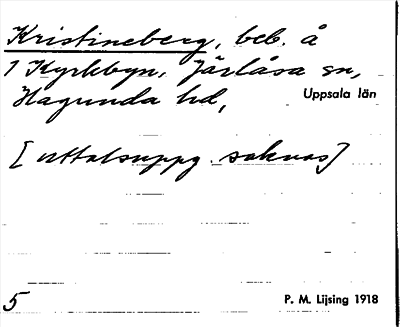 Kristineberg, beb. å
1 Kyrkbyn, Järlåsa sn,
Hagunda hd,
Uppsala län
[uttalsuppg. saknas]
5
P. M. Lijsing 1918